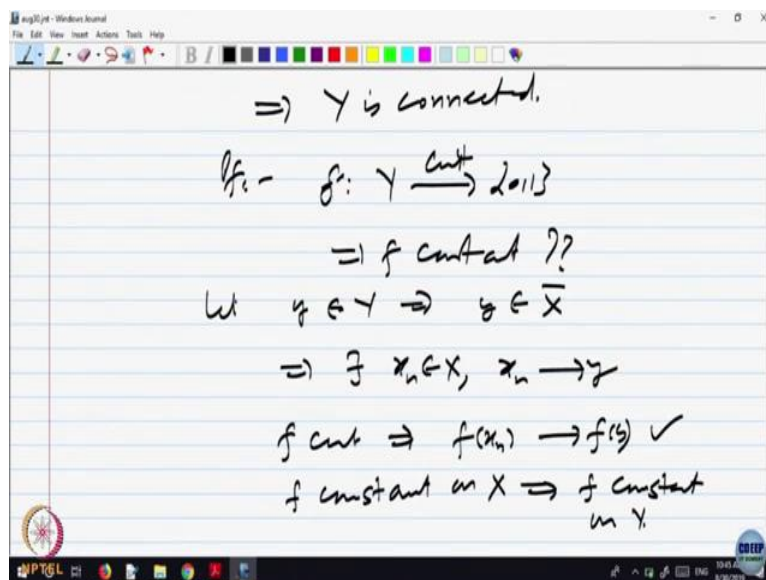 aug30.jnt - Windows Journal
File Edit View Insert Actions Tools Help
B I
⇒ Y is connected.
Pf:- f: Y cont→ {0,1}
⇒ f constant ??
Let y ∈ Y ⇒ y ∈ X̄
⇒ ∃ xₙ ∈ X, xₙ → y
f cont ⇒ f(xₙ) → f(y) ✓
f constant on X ⇒ f constant
on Y.
NPTEL
CDEEP
ENG
8/30/2019